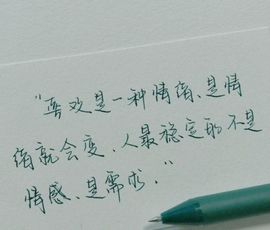 “喜欢是一种情绪、是情
绪就会变、人最稳定的不是
情感、是需求.”